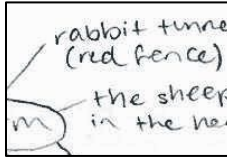 rabbit tunne
(red fence)
the sheep
m
in the he